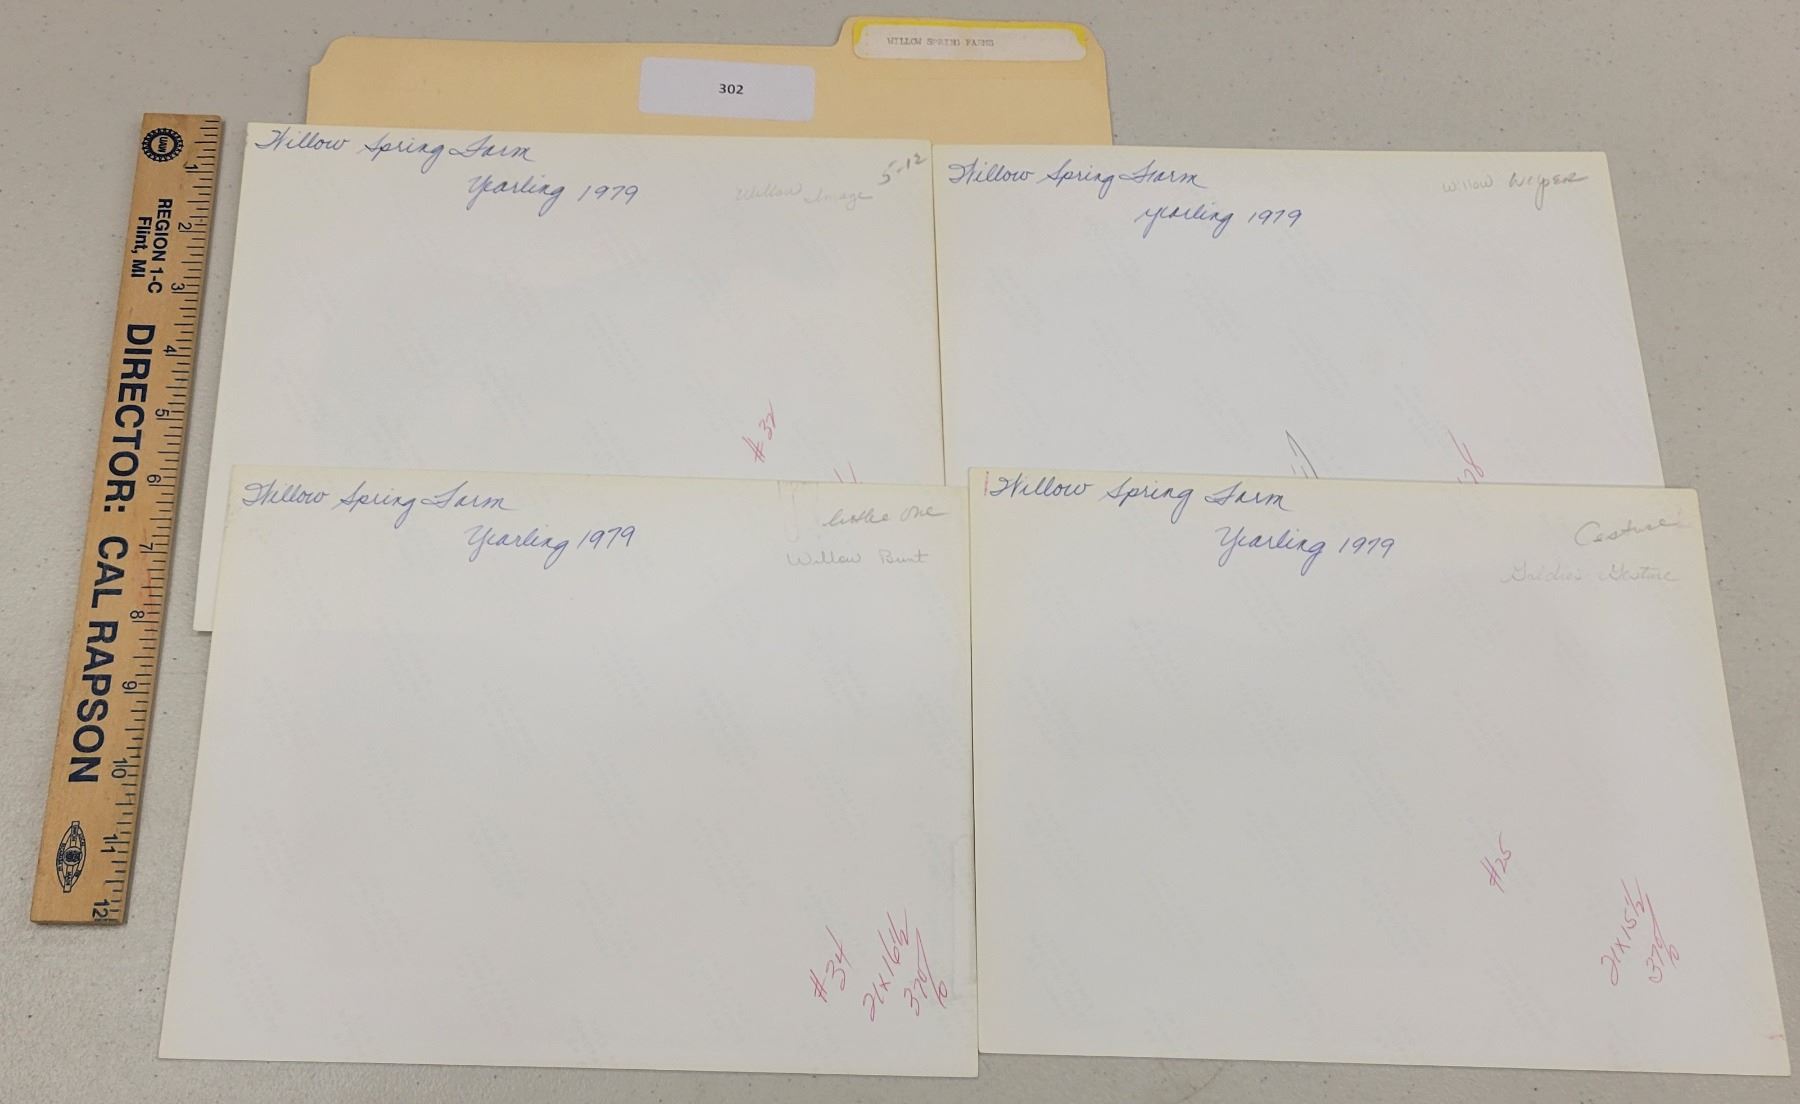 WILLOW SPRING FARMS
302
UAW
REGION 1-C
Flint, MI
DIRECTOR: CAL RAPSON
1
2
3
4
5
6
7
8
9
10
11
12
Willow Spring Farm
Yearling 1979
Willow Image
5-12
#32
Willow Spring Farm
yearling 1979
Willow
Willow Spring Farm
Yearling 1979
little one
Willow Bunt
#34
21x16½
37%
Willow Spring Farm
Yearling 1979
Gesture
#25
21x15½
37%